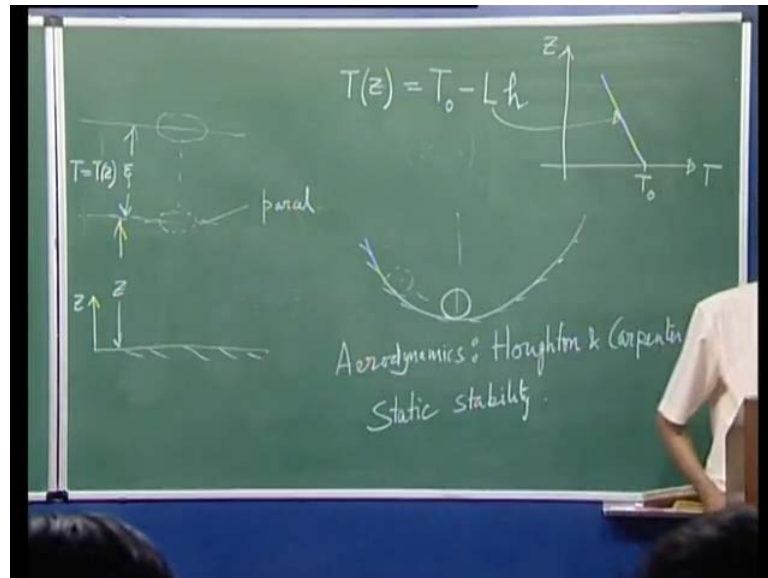 T(z) = T₀ - Lh
z
T
T₀
T=T(z) ξ
paral
z z
Aerodynamics: Houghton & Carpenter
Static stability.